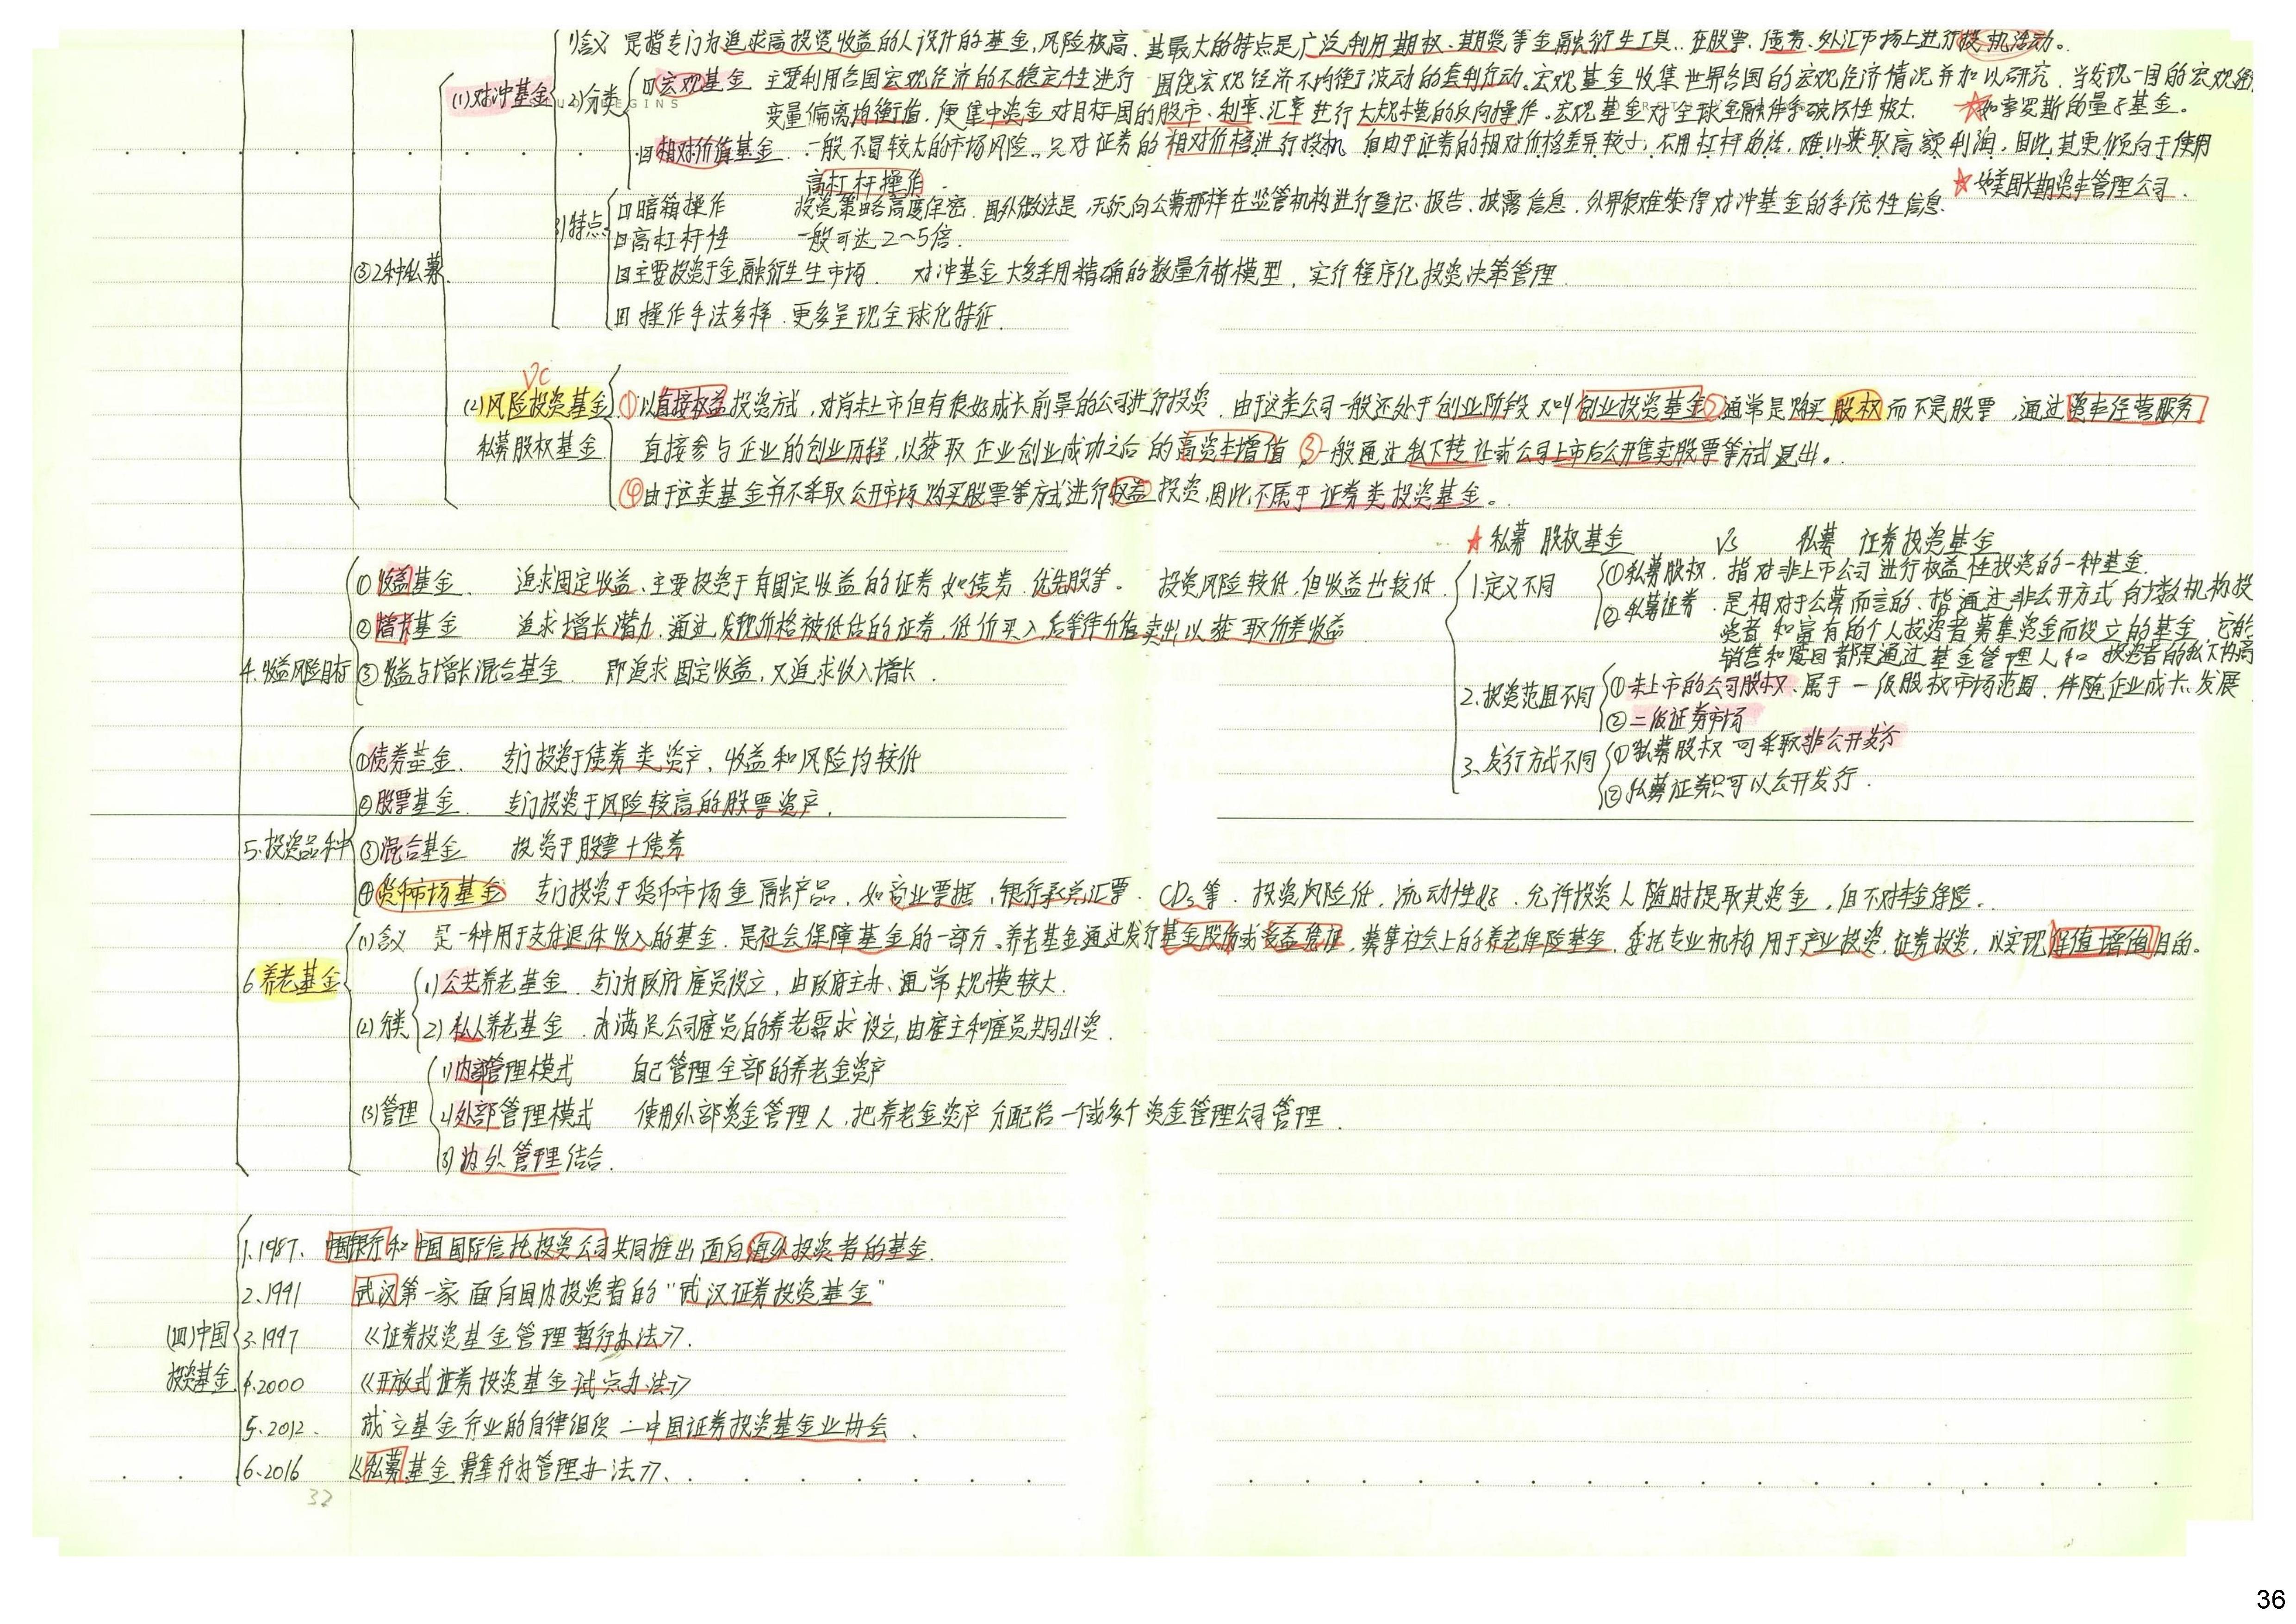 1)含义 是指专门为追求高投资收益的人设计的基金,风险极高.其最大的特点是广泛利用期权、期货等金融衍生工具,在股票、债券、外汇市场上进行投机活动。
(1)对冲基金 2)分类 ①宏观基金 主要利用各国宏观经济的不稳定性进行 围绕宏观经济不均衡波动的套利行动.宏观基金收集世界各国的宏观经济情况并加以研究,当发现一目的宏观经
变量偏离均衡值,便集中资金对目标国的股市、利率、汇率进行大规模的反向操作。宏观基金对全球金融体系破坏性极大. ★如索罗斯的量子基金。
②相对价值基金 一般不冒较大的市场风险。只对证券的相对价格进行投机 但由于证券的相对价格差异较小,不用杠杆的话,难以获取高额利润,因此其更倾向于使用
高杠杆操作. ★如美国长期资本管理公司.
3)特点 ①暗箱操作 投资策略高度保密.国外做法是,无须向公募那样在监管机构进行登记、报告、披露信息.外界很难获得对冲基金的系统性信息.
②高杠杆性 一般可达2~5倍.
③2种私募 ③主要投资于金融衍生生市场. 对冲基金大多采用精确的数量分析模型,实行程序化投资决策管理
④操作手法多样.更多呈现全球化特征.
VC
(2)风险投资基金 ①以直接权益投资方式,对尚未上市但有很好成长前景的公司进行投资.由于这类公司一般还处于创业阶段 又叫创业投资基金②通常是购买股权而不是股票,通过资本经营服务
私募股权基金 直接参与企业的创业历程,以获取企业创业成功之后的高资本增值 ③一般通过私下转让或公司上市后公开售卖股票等方式退出。
④由于这类基金并不采取公开市场购买股票等方式进行权益投资,因此,不属于证券类投资基金。
★私募股权基金 VS 私募证券投资基金
4.收益风险目标 ①收益基金. 追求固定收益、主要投资于有固定收益的证券如债券.优先股等。 投资风险较低,但收益也较低.
②增长基金 追求增长潜力.通过发现价格被低估的证券,低价买入后等待升值卖出以获取价差收益
③收益与增长混合基金. 即追求固定收益,又追求收入增长.
1.定义不同 ①私募股权.指对非上市公司进行权益性投资的一种基金.
②私募证券.是相对于公募而言的、指通过非公开方式向少数机构投
资者和富有的个人投资者募集资金而设立的基金,它的
销售和赎回都是通过基金管理人和投资者的私下协商
2.投资范围不同 ①未上市的公司股权、属于一级股权市场范围.伴随企业成长、发展
②二级证券市场
3.发行方式不同 ①私募股权可采取非公开发行
②私募证券只可以公开发行.
5.投资品种 ①债券基金. 专门投资于债券类资产、收益和风险均较低
②股票基金. 专门投资于风险较高的股票资产.
③混合基金 投资于股票+债券
④货币市场基金 专门投资于货币市场金融产品,如商业票据,银行承兑汇票.CDs等.投资风险低,流动性好.允许投资人随时提取其资金,但不对本金保险..
6养老基金 (1)含义 是一种用于支付退休收入的基金.是社会保障基金的一部分。养老基金通过发行基金股份或受益凭证,募集社会上的养老保险基金.委托专业机构用于产业投资.证券投资,以实现保值增值目的。
(2)分类 1)公共养老基金.专门为政府雇员设立,由政府主办、通常规模较大.
2)私人养老基金.为满足公司雇员的养老需求设立,由雇主和雇员共同出资.
(3)管理 1)内部管理模式 自己管理全部的养老金资产
2)外部管理模式 使用外部资金管理人,把养老金资产分配给一个或多个资金管理公司管理.
3)内外管理结合.
(四)中国投资基金
1.1987. 中国银行和中国国际信托投资公司共同推出面向海外投资者的基金.
2.1991 武汉第一家面向国内投资者的“武汉证券投资基金”
3.1997 《证券投资基金管理暂行办法》.
4.2000 《开放式证券投资基金试点办法》
5.2012. 成立基金行业的自律组织—中国证券投资基金业协会.
6.2016 《私募基金募集行为管理办法》.
32
36